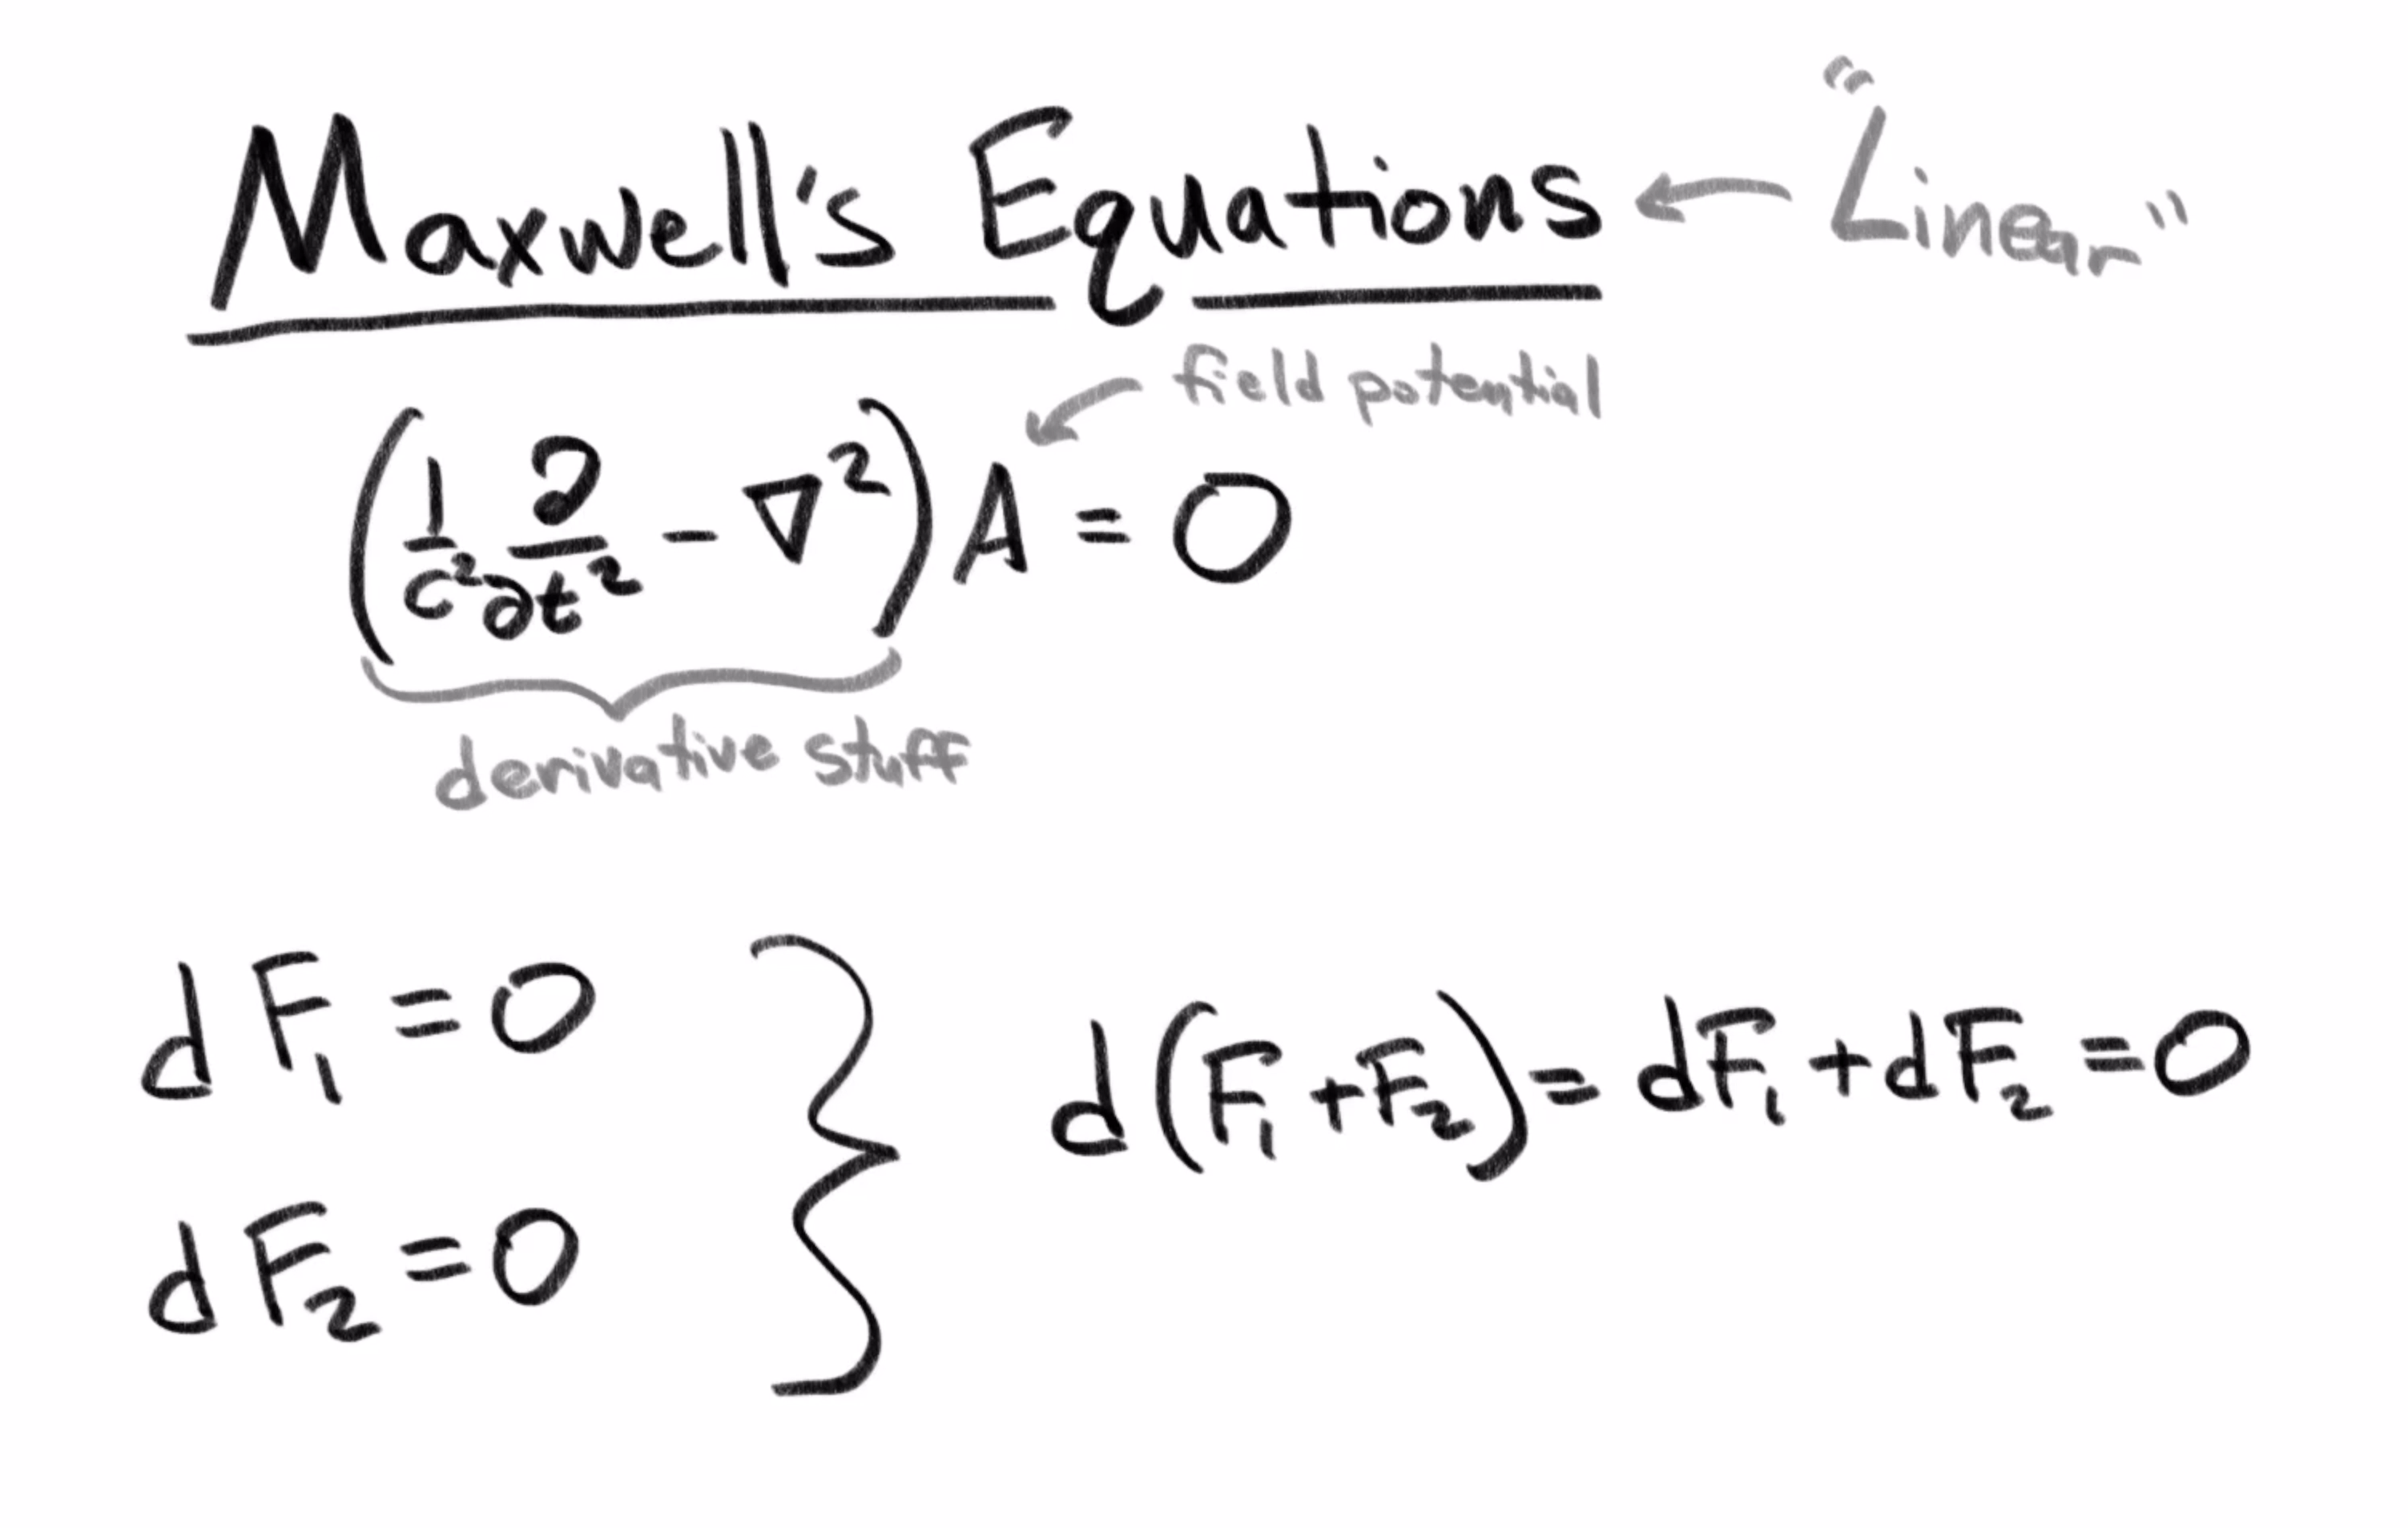 Maxwell's Equations ← "Linear"
field potential
(1/c² ∂/∂t² − ∇²)A = 0
derivative stuff
dF₁ = 0
d(F₁ + F₂) = dF₁ + dF₂ = 0
dF₂ = 0